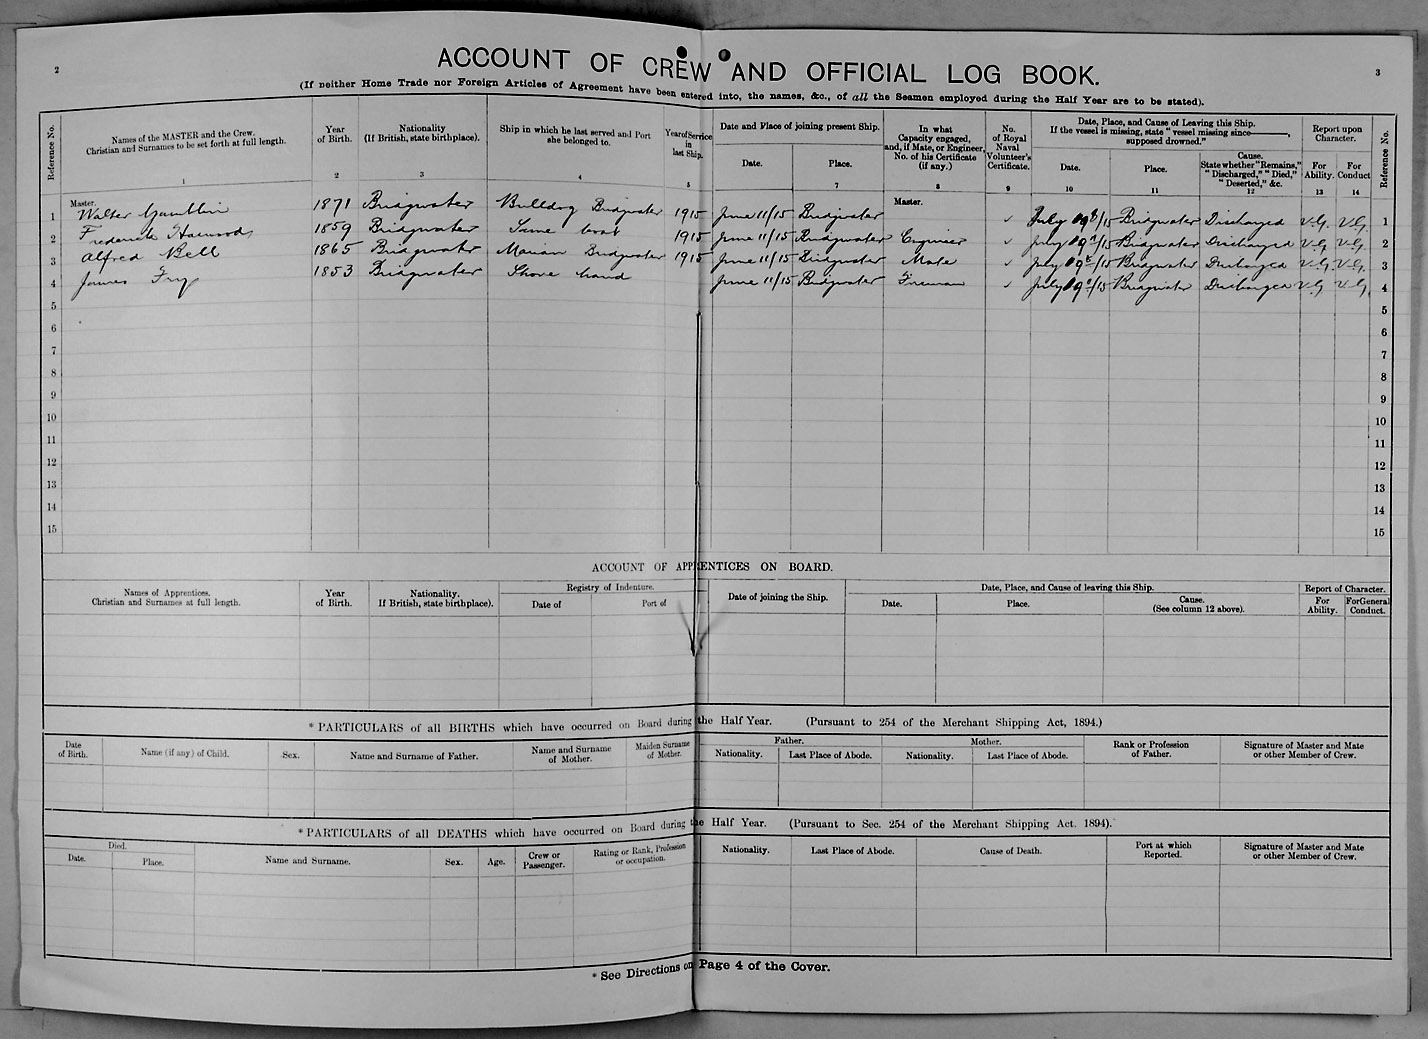 2
3
ACCOUNT OF CREW AND OFFICIAL LOG BOOK.
(If neither Home Trade nor Foreign Articles of Agreement have been entered into, the names, &c., of all the Seamen employed during the Half Year are to be stated).
Reference No.
Names of the MASTER and the Crew.
Christian and Surnames to be set forth at full length.
1
Year
of Birth.
2
Nationality
(If British, state birthplace).
3
Ship in which he last served and Port
she belonged to.
4
Year of Service
in
last Ship.
5
Date and Place of joining present Ship.
Date.
Place.
7
In what
Capacity engaged,
and, if Mate, or Engineer,
No. of his Certificate
(if any.)
8
No.
of Royal
Naval
Volunteer's
Certificate.
9
Date, Place, and Cause of Leaving this Ship.
If the vessel is missing, state "vessel missing since——,
supposed drowned."
Date.
10
Place.
11
Cause.
State whether "Remains,"
"Discharged," "Died,"
"Deserted," &c.
12
Report upon
Character.
For
Ability.
13
For
Conduct
14
Reference No.
Master.
Master.
1 Walter Gamblin 1871 Bridgwater Bulldog Bridgwater 1915 June 11/15 Bridgwater ✓ July 09th/15 Bridgwater Discharged V.G. V.G. 1
2 Frederick Harwood 1859 Bridgwater Same boat 1915 June 11/15 Bridgwater Engineer ✓ July 09th/15 Bridgwater Discharged V.G. V.G. 2
3 Alfred Bell 1865 Bridgwater Marian Bridgwater 1915 June 11/15 Bridgwater Mate ✓ July 09th/15 Bridgwater Discharged V.G. V.G. 3
4 James Fry 1853 Bridgwater Shore hand June 11/15 Bridgwater Fireman ✓ July 09th/15 Bridgwater Discharged V.G. V.G. 4
5 5
6 6
7 7
8 8
9 9
10 10
11 11
12 12
13 13
14 14
15 15
ACCOUNT OF APPRENTICES ON BOARD.
Names of Apprentices.
Christian and Surnames at full length.
Year
of Birth.
Nationality.
If British, state birthplace).
Registry of Indenture.
Date of
Port of
Date of joining the Ship.
Date, Place, and Cause of leaving this Ship.
Date.
Place.
Cause.
(See column 12 above).
Report of Character.
For
Ability.
For General
Conduct.
* PARTICULARS of all BIRTHS which have occurred on Board during the Half Year. (Pursuant to 254 of the Merchant Shipping Act, 1894.)
Date
of Birth.
Name (if any) of Child.
Sex.
Name and Surname of Father.
Name and Surname
of Mother.
Maiden Surname
of Mother.
Father.
Nationality.
Last Place of Abode.
Mother.
Nationality.
Last Place of Abode.
Rank or Profession
of Father.
Signature of Master and Mate
or other Member of Crew.
* PARTICULARS of all DEATHS which have occurred on Board during the Half Year. (Pursuant to Sec. 254 of the Merchant Shipping Act. 1894).
Died.
Date.
Place.
Name and Surname.
Sex.
Age.
Crew or
Passenger.
Rating or Rank, Profession
or occupation.
Nationality.
Last Place of Abode.
Cause of Death.
Port at which
Reported.
Signature of Master and Mate
or other Member of Crew.
* See Directions on Page 4 of the Cover.